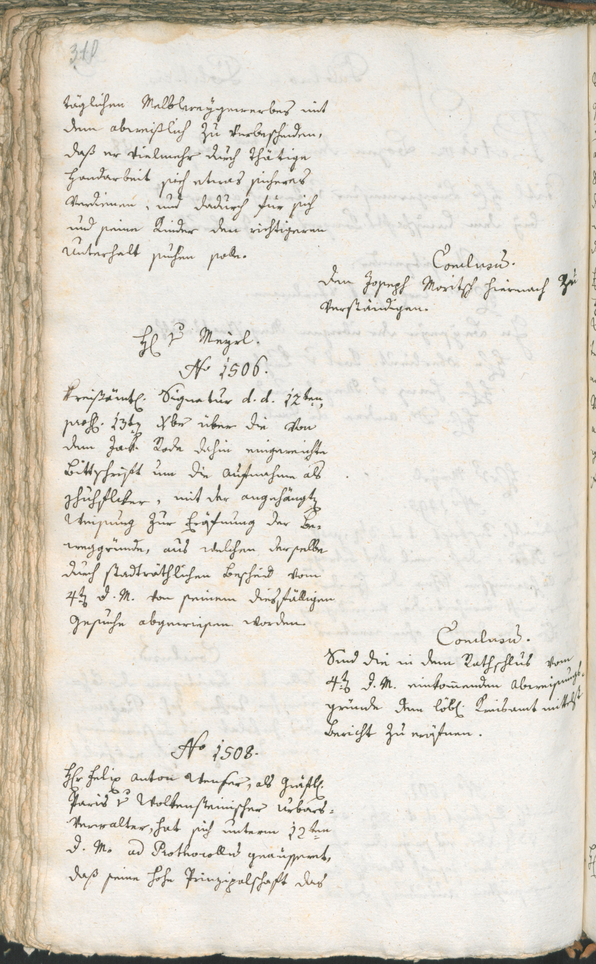 310
täglichen Melbleraygewerbes mit
dem abweißlich zu verbescheiden,
daß er vielmehr durch thätige
Handarbeit sich etwas sicheres
verdienen, und dadurch für sich
und seine Kinder den richtigeren
Unterhalt suchen solle.
Conclusu.
Dem Joseph Moritsch hiernach zu
verständigen.
H v Meyrl.
No 1506.
Kreisämtl. Signatur d. d. 12ten
13t Xbr über die von
dem Jak. Rode dahin eingereichte
Bittschrift um die Aufnahme als
Schuhfliker, mit der angehängte
Weisung zur Eröfnung der Be-
weggründe, aus welchen derselbe
durch stadträthlichen Bescheid vom
4t d. M. von seinem diesfälligen
Gesuche abgewiesen worden.
Conclusu.
Sind die in dem Rathschlus vom
4t d. M. einkommenden Abweisungs-
gründe dem löbl. Kreisamt mittelst
Bericht zu eröfnen.
No 1508.
Hr Felix Anton, als Gräfl.
Paris v Wolkensteinischer Urbars-
Verwalter, hat sich unterm 12ten
d. M. ad Prothocollu geäussert,
daß seine hohe Prinzipalschaft das